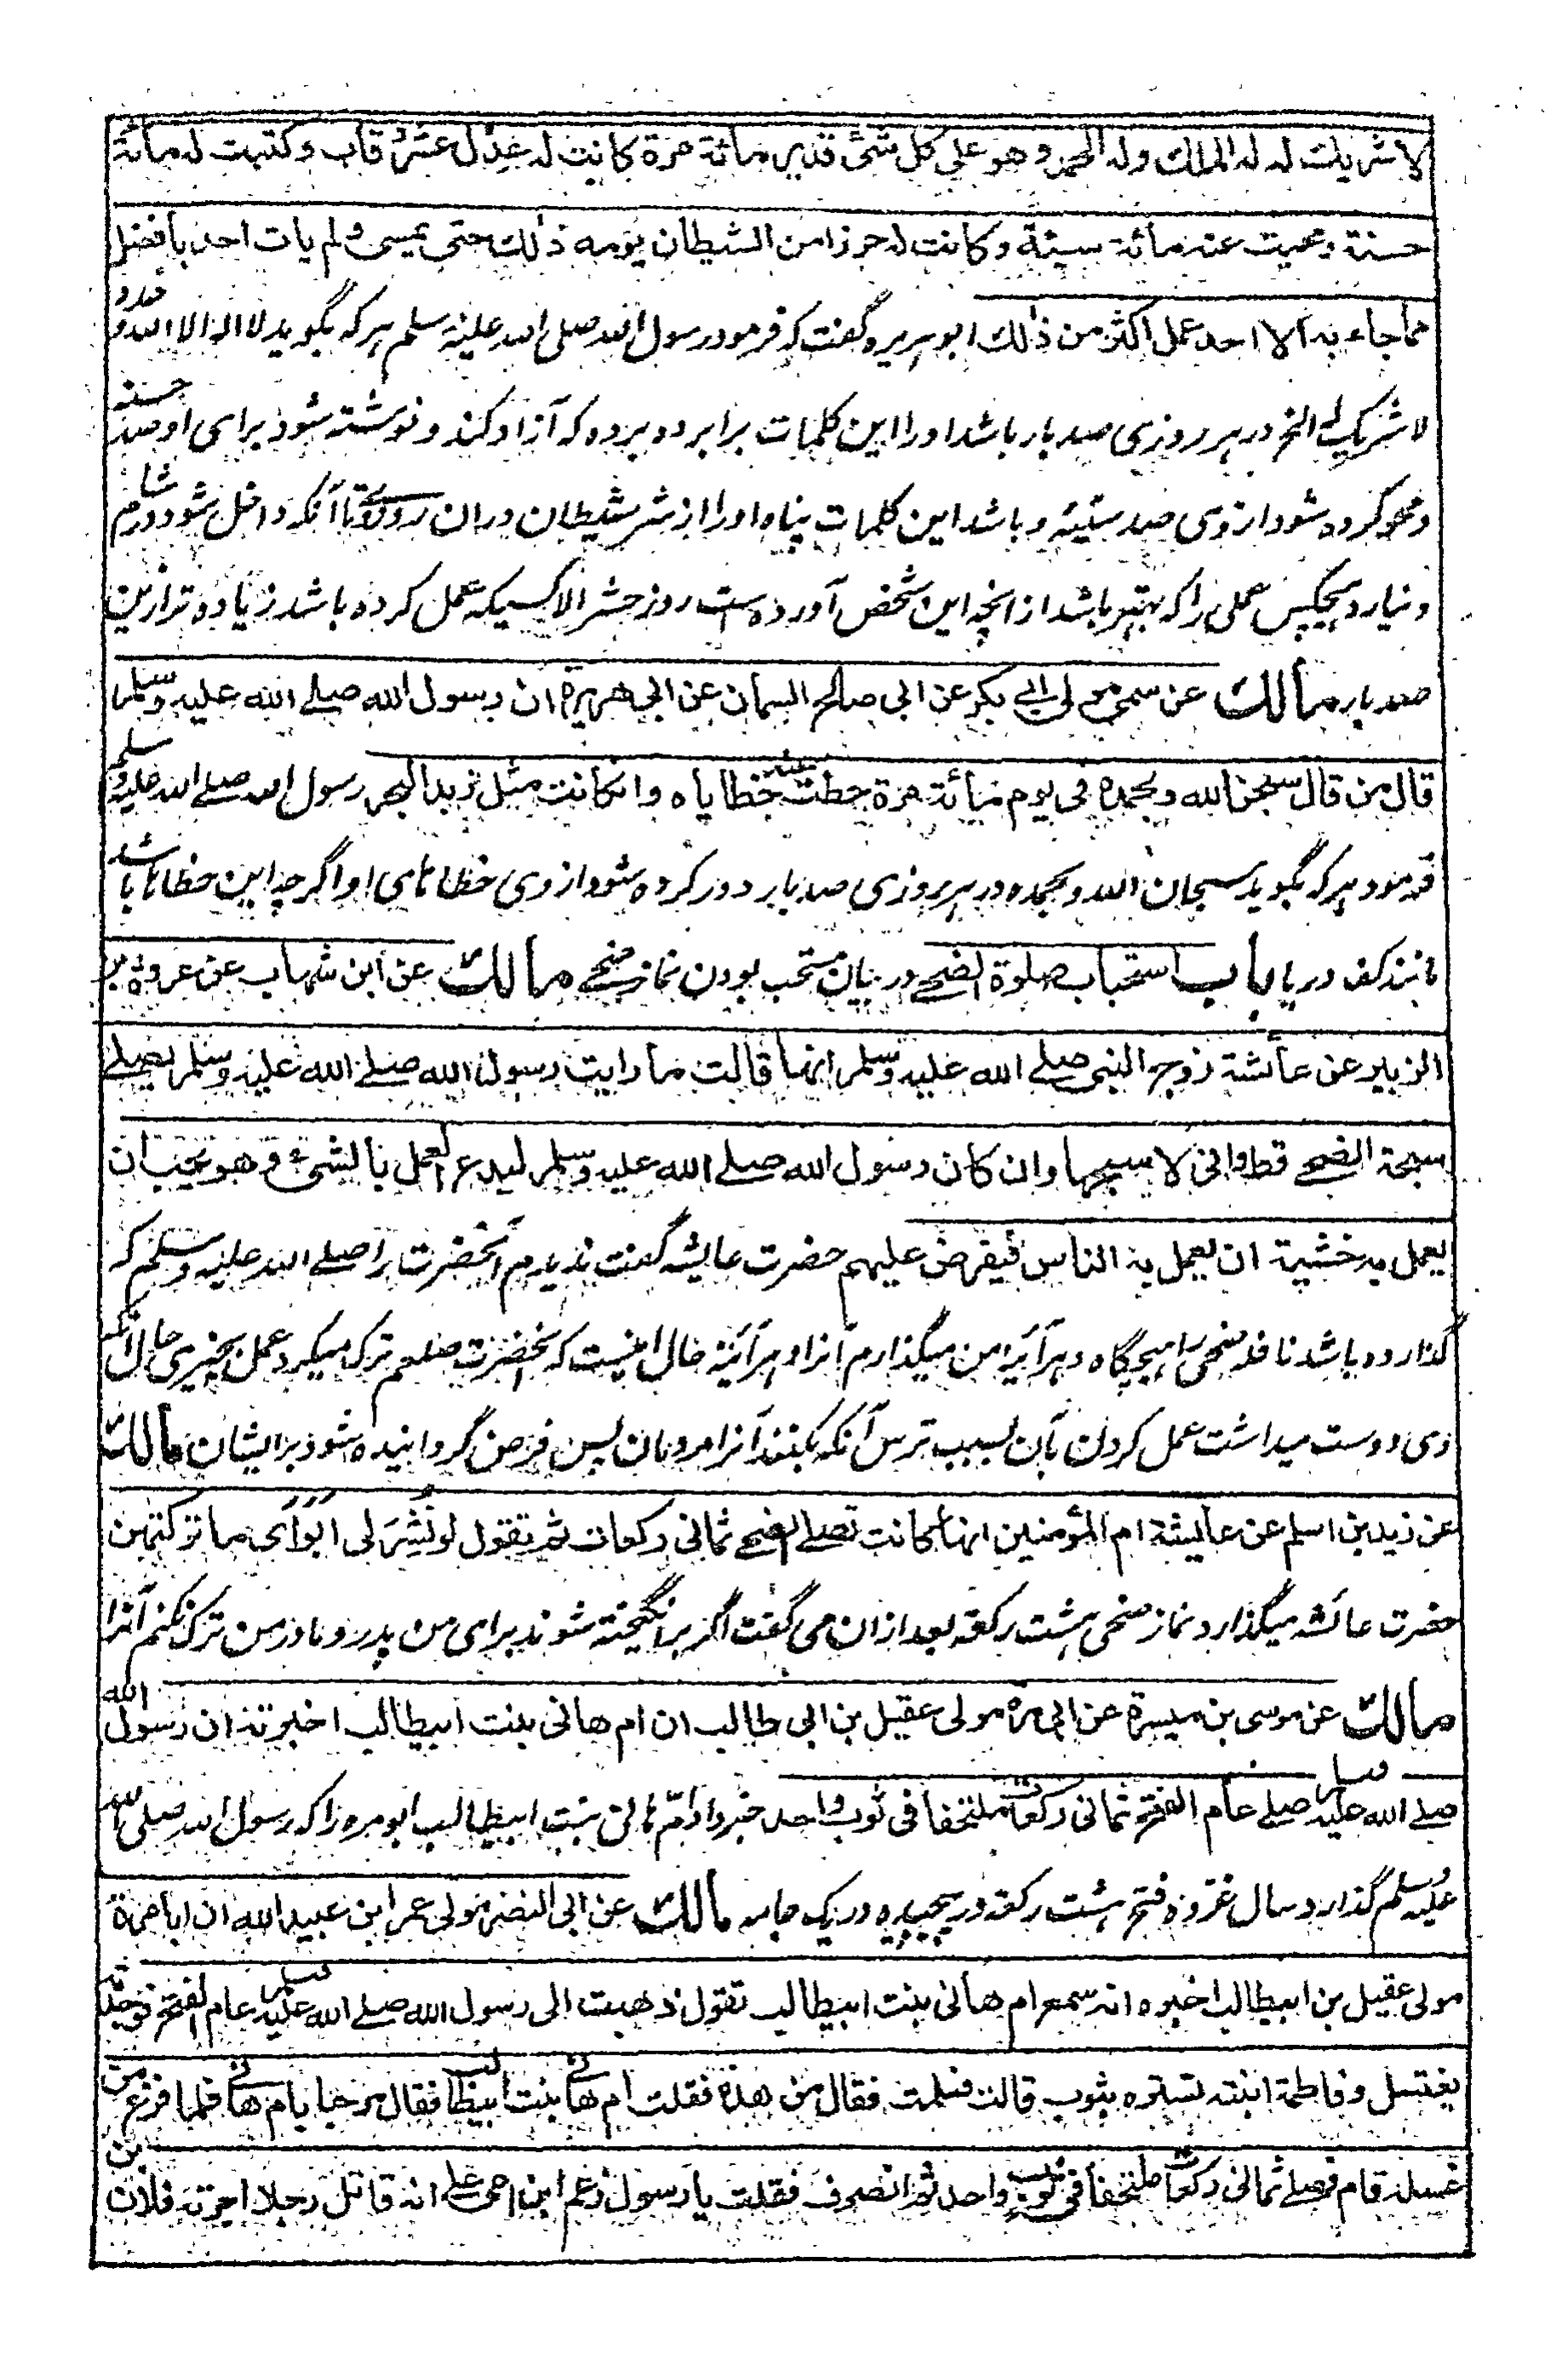 لا شريك له له الملك وله الحمد وهو على كل شئ قدير مائة مرة كانت له عدل عشر رقاب وكتبت له مائة
حسنة ومحيت عنه مائة سيئة وكانت له حرزا من الشيطان يومه ذلك حتى يمسى ولم يات احد بافضل
مما جاء به الا احد عمل اكثر من ذلك ابو ہریرہ گفت کہ فرمود رسول الله صلى الله عليه وسلم ہر کہ بگوید لا اله الا الله وحده
لا شريك له الخ در ہر روزی صد بار باشد او را این کلمات برابر ده برده که آزاد کند و نوشته شود برای او صد حسنه
و محو کرده شود از وی صد سیئه و باشد این کلمات پناه او را از شر شیطان در ان روز تا آنکه داخل شود در شام
و نیارد هیچکس عملی را که بهتر باشد از انچه این شخص آورده است روز حشر الا کسیکه عمل کرده باشد زیاده تر ازین
صد بار مالك عن سمي مولى ابى بكر عن ابى صالح السمان عن ابى هريرة ان رسول الله صلے الله عليه وسلم
قال من قال سبحن الله وبحمده فى يوم مائة مرة حطت عنه خطاياه وانكانت مثل زبد البحر رسول الله صلے الله عليه وسلم
فرمود ہر کہ بگوید سبحان الله وبحمده در ہر روزی صد بار دور کرده شود از وی خطاهای او اگرچه این خطاها باشد
مانند کف دریا باب استحباب صلوة الضحے در بیان مستحب بودن نماز ضحے مالك عن ابن شهاب عن عروة بن
الزبير عن عائشة زوج النبى صلے الله عليه وسلم انها قالت ما رايت رسول الله صلے الله عليه وسلم يصلے
سبحة الضحے قط وانى لاسبحها وان كان رسول الله صلے الله عليه وسلم ليدع العمل بالشئ وهو يحب ان
يعمل به خشية ان يعمل به الناس فيفرض عليهم حضرت عایشه گفت ندیدم آنحضرت را صلے الله علیه وسلم که
گذارده باشد نافله ضحی را هیچگاه و هر آئینه من میگذارم آنرا و هر آئینه حال اینست که آنحضرت صلعم ترک میکرد عمل بچیزی حال آنکه
وی دوست میداشت عمل کردن بآن بسبب ترس آنکه بکنند آنرا مردمان پس فرض گردانیده شود بر ایشان مالك
عن زيد بن اسلم عن عائشة ام المؤمنين انها كانت تصلے الضحے ثمانى ركعات ثم تقول لو نشر لى ابواى ما تركتهن
حضرت عائشه میگذارد نماز ضحی هشت رکعة بعد از ان می گفت اگر برانگیخته شوند برای من پدر و مادر من ترک نکنم آنرا
مالك عن موسى بن ميسرة عن ابى مرة مولى عقيل بن ابى طالب ان ام هانى بنت ابيطالب اخبرته ان رسول الله
صلے الله عليه وسلم صلے عام الفتح ثمانى ركعات ملتحفا فى ثوب واحد خبر داد ام هانی بنت ابیطالب ابو مره را که رسول الله صلی الله
علیه وسلم گذارد سال غزوه فتح هشت رکعة در پیچیده در یک جامه مالك عن ابى النضر مولى عمر ابن عبيد الله ان ابا مرة
مولى عقيل بن ابيطالب اخبره انه سمع ام هانى بنت ابيطالب تقول ذهبت الى رسول الله صلے الله عليه وسلم عام الفتح فوجدته
يغتسل وفاطمة ابنته تستره بثوب قالت فسلمت فقال من هذه فقلت ام هانى بنت ابيطالب فقال مرحبا يا ام هانى فلما فرغ من
غسله قام فصلے ثمانى ركعات ملتحفا فى ثوب واحد ثم انصرف فقلت يا رسول زعم ابن امى على انه قاتل رجلا اجرته فلان بن